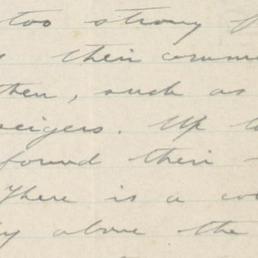 too strong
their comm
then, such as
Up t
found their
There is a co
above the